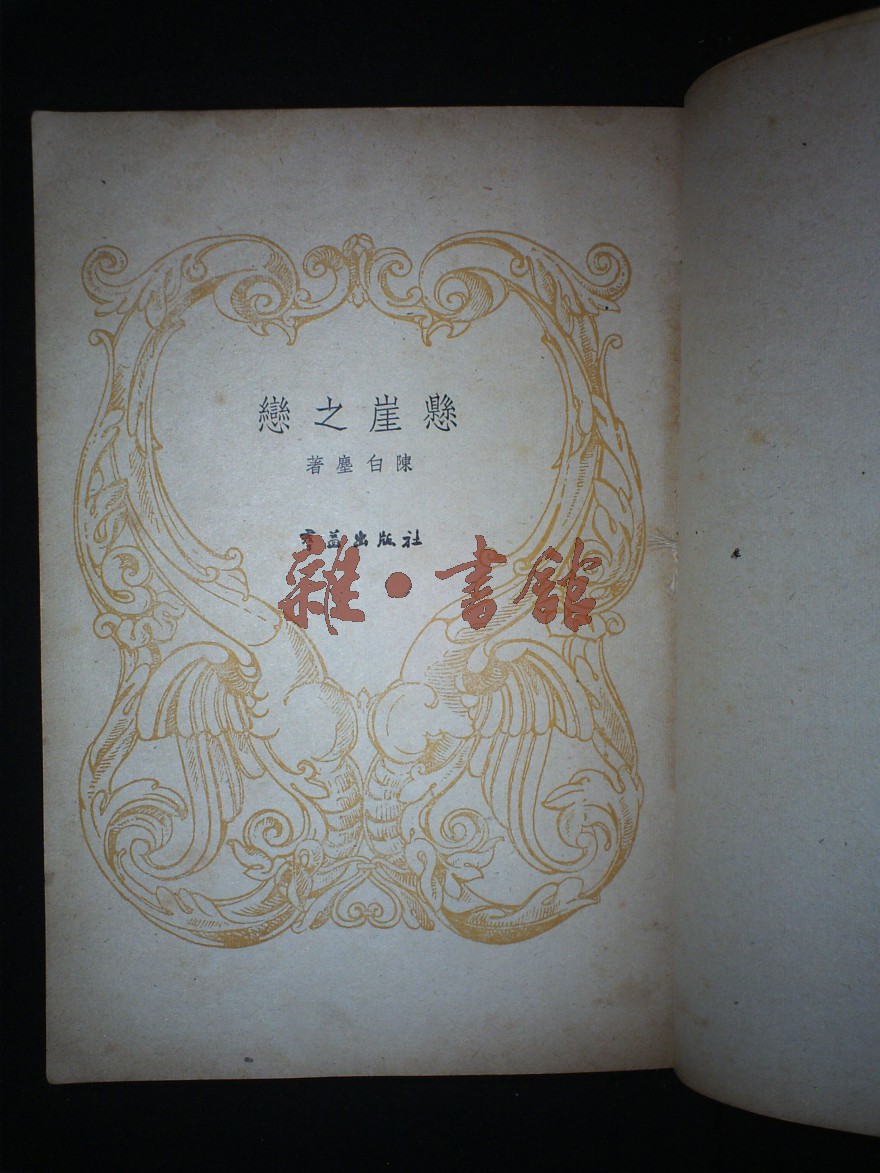 懸崖之戀
陳白塵著
羣益出版社
雜·書館